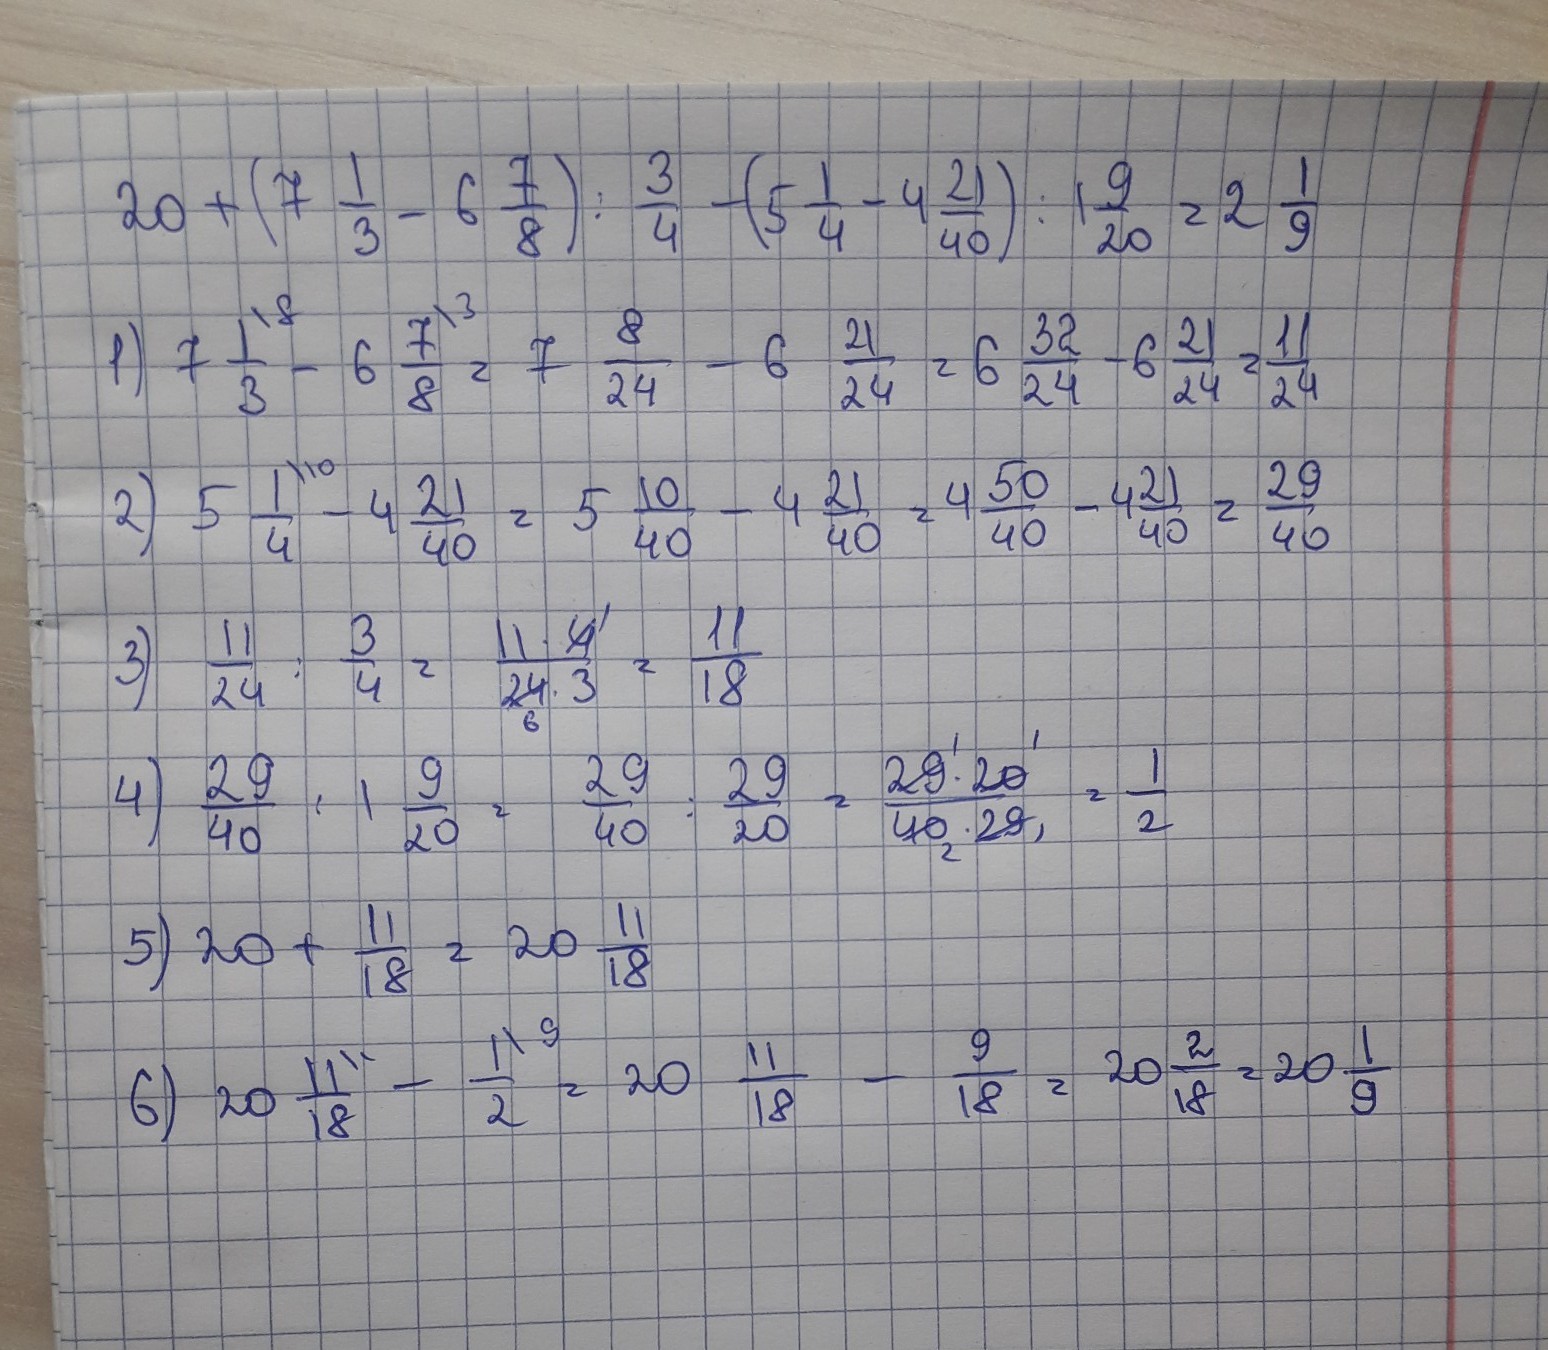 20 + (7 1/3 - 6 7/8) : 3/4 - (5 1/4 - 4 21/40) : 1 9/20 = 2 1/9
1) 7 1/3 \8 - 6 7/8 \3 = 7 8/24 - 6 21/24 = 6 32/24 - 6 21/24 = 11/24
2) 5 1/4 \10 - 4 21/40 = 5 10/40 - 4 21/40 = 4 50/40 - 4 21/40 = 29/40
3) 11/24 : 3/4 = 11 · 4 1/24 6 · 3 = 11/18
4) 29/40 : 1 9/20 = 29/40 : 29/20 = 29 1 · 20 1/40 2 · 29 1 = 1/2
5) 20 + 11/18 = 20 11/18
6) 20 11/18 \1 - 1/2 \9 = 20 11/18 - 9/18 = 20 2/18 = 20 1/9